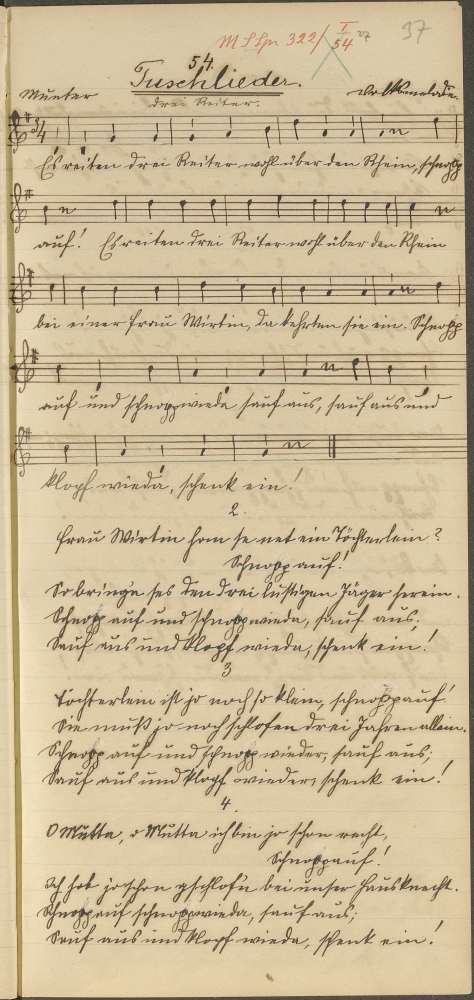 M S Spr 322/ I/54 97
54.
Tuschlieder.
Munter Volksmelodie.
Drei Reiter.
Es reiten drei Reiter wohl über den Rhein, schnopp
auf! Es reiten drei Reiter wohl über den Rhein
bei einer Frau Wirtin, da kehrten sie ein. Schnopp
auf und schnopp wieda sauf aus, sauf aus und
klopf wieda, schenk ein!
2.
Frau Wirtin ham se net ein Töchterlein?
Schnopp auf!
So bringn ses den drei lustigen Jäger herein.
Schnopp auf und schnopp wieda, sauf aus,
Sauf aus und klopf wieda, schenk ein!
3
Töchterlein ist jo noch so klein, schnopp auf!
Sie muß jo noch schlofen drei Jahren allein.
Schnopp auf und schnopp wieder, sauf aus;
Sauf aus und klopf wieder, schenk ein!
4.
O Mutta, o Mutta ich bin jo schon recht,
Schnopp auf!
Ich hob jo schon gschlof'n bei unser Hausknecht.
Schnopp auf schnopp wieda, sauf aus;
Sauf aus und klopf wieda, schenk ein!